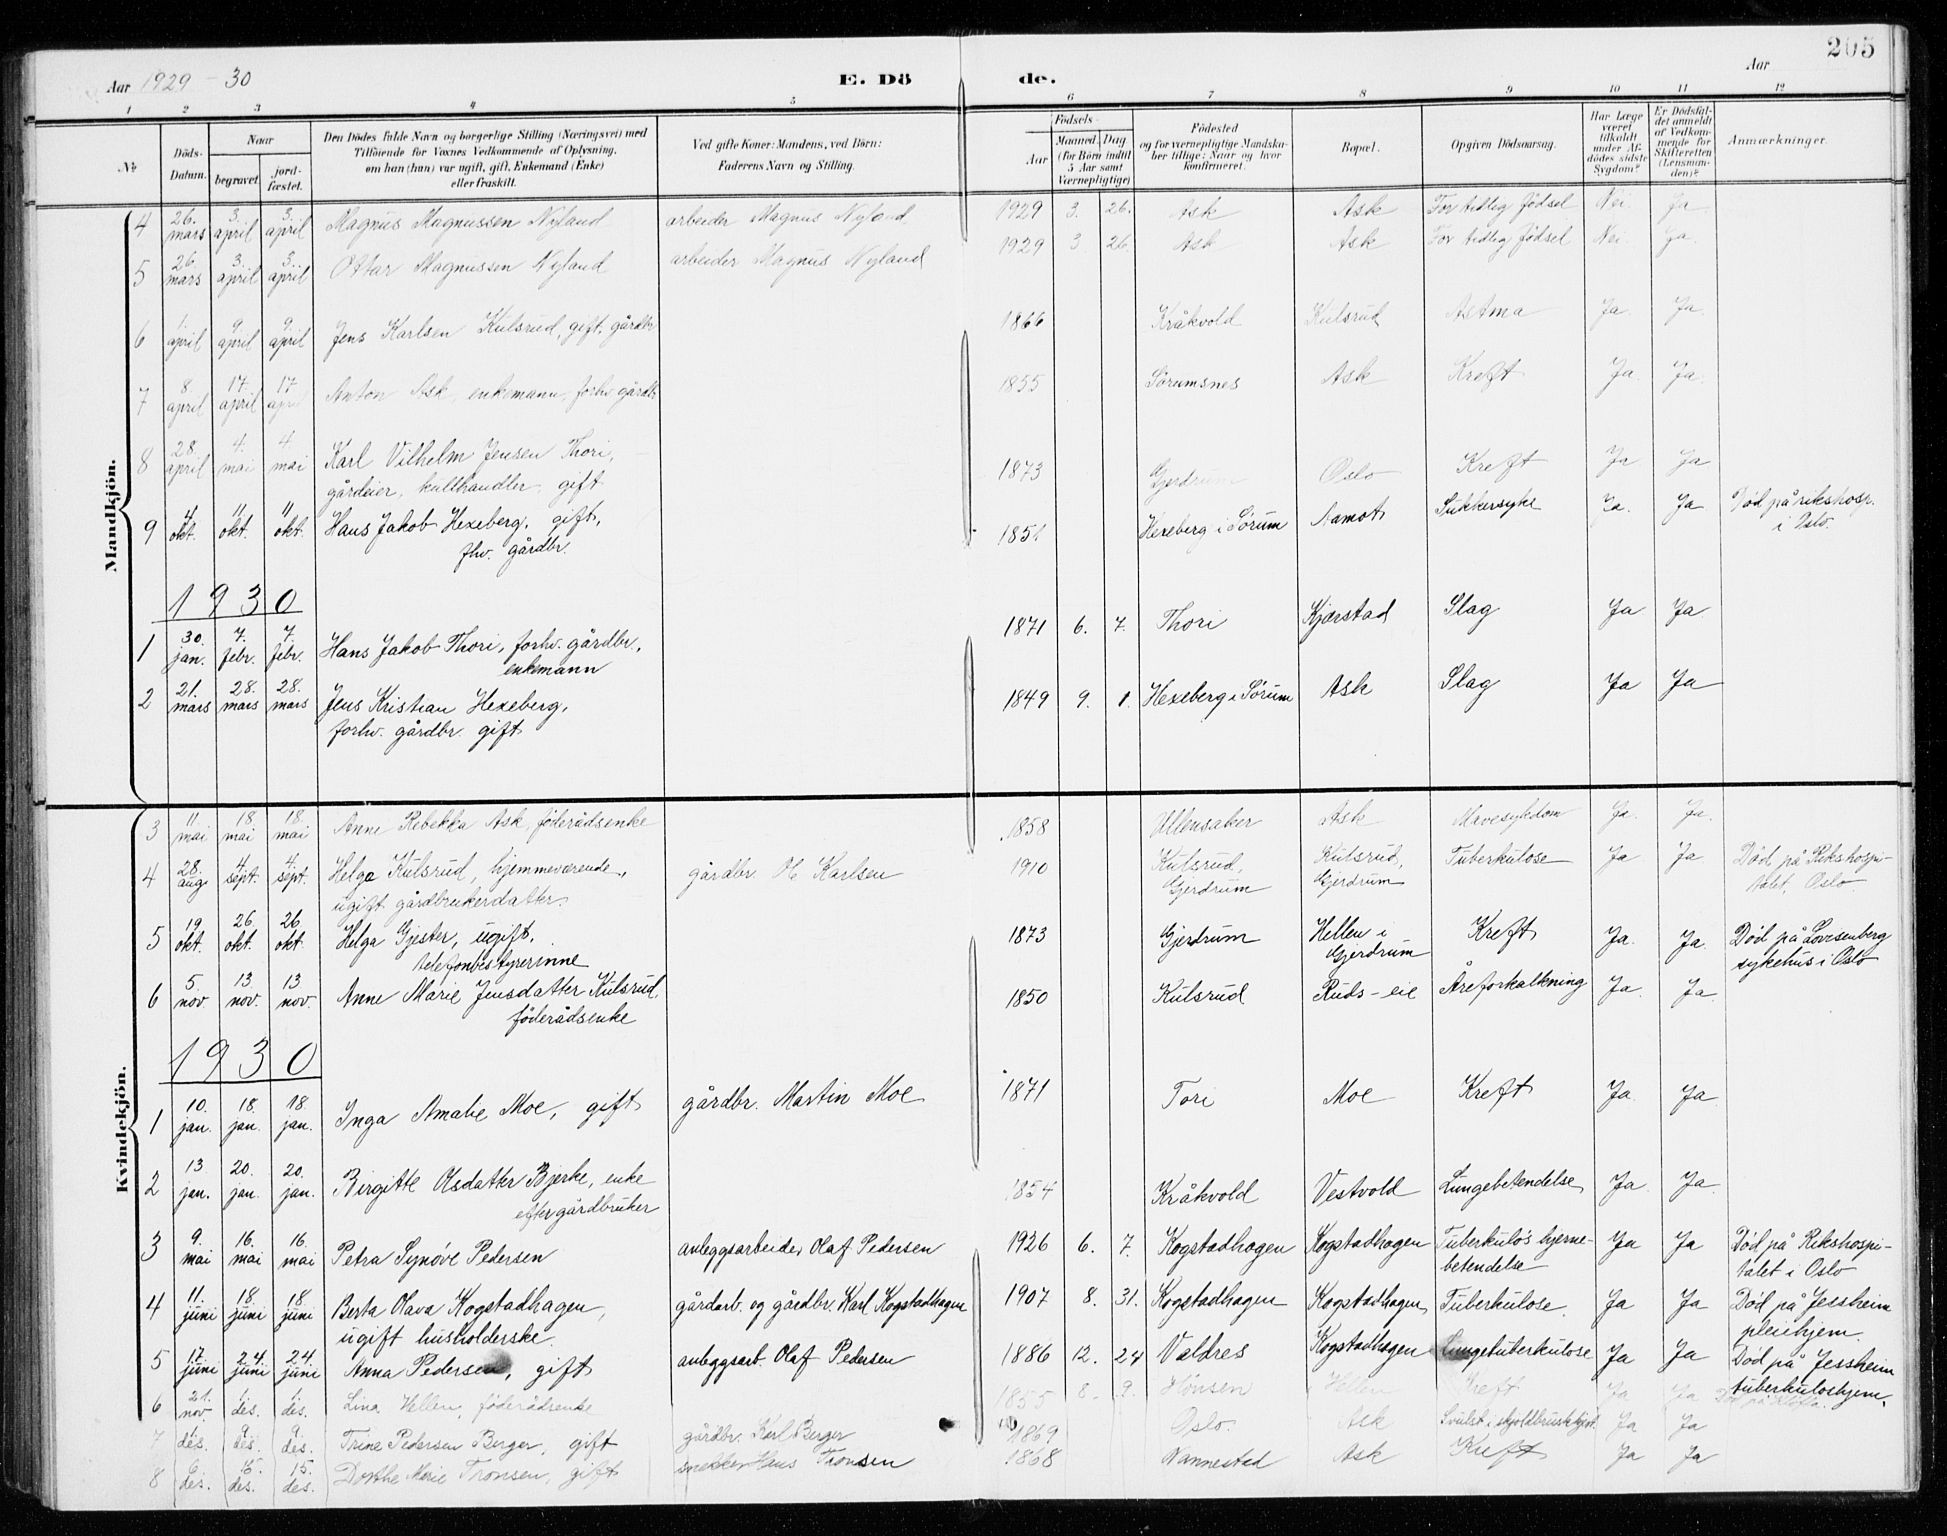 205
Aar 1929 - 30 E. Dö de. Aar
1 2 3 4 5 6 7 8 9 10 11 12
No. Döds-Datum. Naar begravet. jord-fæstet. Den Dödes fulde Navn og borgerlige Stilling (Næringsvei) med Tilföiende for Voxnes Vedkommende af Oplysning, om han (hun) var ugift, gift, Enkemand (Enke) eller fraskilt. Ved gifte Koner: Mandens, ved Börn: Faderens Navn og Stilling. Födsels- Aar Maaned. Dag (for Börn indtil 5 Aar samt Værnepligtige) Födested og for værnepligtige Mandskaber tillige: Naar og hvor konfirmeret. Bopæl. Opgiven Dödsaarsag. Har Læge været tilkaldt under Afdödes sidste Sygdom? Er Dödsfaldet anmeldt af Vedkommende for Skifteretten (Lensmanden)? Anmærkninger.
Mandkjön.
4 26. mars 3. april 3. april Magnus Magnussen Nyland arbeider Magnus Nyland 1929 3. 26. Ask Ask For tidlig födsel Nei Ja
5 26. mars 3. april 3. april Ottar Magnussen Nyland arbeider Magnus Nyland 1929 3 26. Ask Ask For tidlig födsel Nei Ja
6 1 april 9 april 9. april Jens Karlsen Kulsrud, gift, gårdbr 1866 Kråkvold Kulsrud Astma Ja Ja.
7 8 april 17. april 17 april Anton Ask, enkemann, forhv. gårdbr. 1855 Sörumsnes Ask Kreft Ja Ja.
8 28. april 4. mai 4 mai Karl Vilhelm Jensen Thori, gårdeier, kullhandler, gift 1873 Gjerdrum Oslo Kreft Ja Ja
9 4 okt. 11 okt. 11 okt. Hans Jakob Hexeberg, gift, fhv. gårdbr. 1851 Hexeberg i Sörum Aamot Sukkersyke Ja. Ja Död på rikshosp. i Oslo.
1930
1 30. jan. 7. febr. 7. febr. Hans Jakob Thori, forhv. gårdbr., enkemann 1871 6. 7. Thori Kjærstad Slag Ja Ja
2 21. mars 28. mars 28. mars Jens Kristian Hexeberg, forhv. gårdbr. gift 1849 9. 1. Hexeberg i Sörum Ask Slag Ja Ja
Kvindekjön.
3 11 mai 18 mai 18. mai Anne Rebekka Ask, föderådsenke 1858 Ullensaker Ask Mavesykdom Ja. Ja.
4 28. aug 4 sept. 4 sept. Helga Kulsrud, hjemmeværende, ugift gårdbrukerdatter. gårdbr. Ol Karlsen 1910 Kulsrud, Gjerdrum Kulsrud, Gjerdrum Tuberkulose Ja Ja Död på Rikshospitalet, Oslo
5 19. okt. 26 okt. 26. okt. Helga Gjester, ugift, telefonbestyrerinne 1873 Gjerdrum Hellen i Gjerdrum Kreft Ja. Ja. Död på Lovisenberg sykehus i Oslo
6 5. nov 13 nov. 13 nov. Anne Marie Jensdatter Kulsrud, föderådsenke 1850 Kulsrud Ruds-eie Åreforkalkning Ja. Ja.
1930
1 10. jan. 18. jan. 18. jan. Inga Amalie Moe, gift gårdbr. Martin Moe 1871 Tori Moe Kreft Ja Ja.
2 13 jan. 20. jan. 20. jan. Birgitte Olsdatter Bjerke, enke efter gårdbruker 1854 Kråkvold Vestvold Lungebetendelse Ja Ja.
3 9. mai 16. mai 16. mai Petra Synöve Pedersen anleggsarbeider Olaf Pedersen 1926 6. 7. Kogstadhagen Kogstadhagen Tuberkulös hjernebetendelse Ja Ja Död på Rikshospitalet i Oslo
4 11. juni 18 juni 18 juni Berta Olava Kogstadhagen, ugift husholderske. gårdarb. og gårdbr. Karl Kogstadhagen 1907 8. 31. Kogstadhagen Kogstadhagen Tuberkulose. Ja Ja Död på Jessheim pleiehjem.
5 17. juni 24 juni 24 juni Anna Pedersen, gift anleggsarb. Olaf Pedersen 1886 12. 24 Valdres Kogstadhagen Lungetuberkulose Ja Ja Död på Jessheim tuberkulosehjem.
6 21. nov. 1. des. 1. des. Lina Hellen, föderådsenke 1855 8. 9. Hönsen Hellen Kreft Ja Ja Död på Kløfta.
7 1 des. 9. des. 9. des. Trine Pedersen Berger, gift gårdbr. Karl Berger 1869 Oslo. Ask Svulst i skjoldbruskkjert. Ja Ja
8 6 des. 15. des. 15. des. Dorthe Marie Tronsen, gift snekker Hans Tronsen 1868 Nannestad Ask Kreft Ja Ja